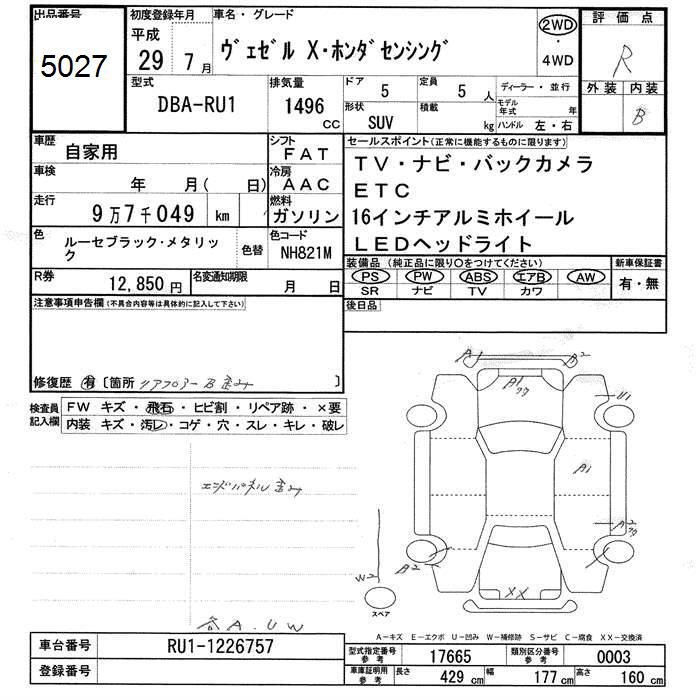 出品番号
5027
初度登録年月
平成
29 7月
車名・グレード
ヴェゼル X・ホンダセンシング
2WD
・
4WD
評価点
R
外装 内装
B
型式
DBA-RU1
排気量
1496
CC
ドア
5
定員
5 人
形状
SUV
積載
kg
ディーラー・並行
モデル年式 年
ハンドル 左・右
車歴
自家用
シフト
FAT
車検
年 月( 日)
冷房
AAC
走行
9万7千049 km
燃料
ガソリン
色
ルーセブラック・メタリック
色替
色コード
NH821M
R券
12,850 円
名変通知期限
月 日
セールスポイント(正常に機能するものに限ります)
TV・ナビ・バックカメラ
ETC
16インチアルミホイール
LEDヘッドライト
装備品(純正品に限り〇をつけてください)
PS PW ABS エアB AW
SR ナビ TV カワ
新車保証書
有・無
後日品
注意事項申告欄(不具合内容等は具体的に記入して下さい)
修復歴 有 〔箇所 リアフロアーB歪み 〕
検査員記入欄
FW キズ・飛石・ヒビ割・リペア跡・×要
内装 キズ・汚レ・コゲ・穴・スレ・キレ・破レ
エンドパネル歪み
各A.UW
A1
A2
A1
U1
A1
A2
A2
W2
XX
スペア
A-キズ E-エクボ U-凹み W-補修跡 S-サビ C-腐食 XX-交換済
車台番号
RU1-1226757
登録番号
型式指定番号 参考
17665
類別区分番号 参考
0003
車庫証明用 参考
長さ 429 cm
幅 177 cm
高さ 160 cm